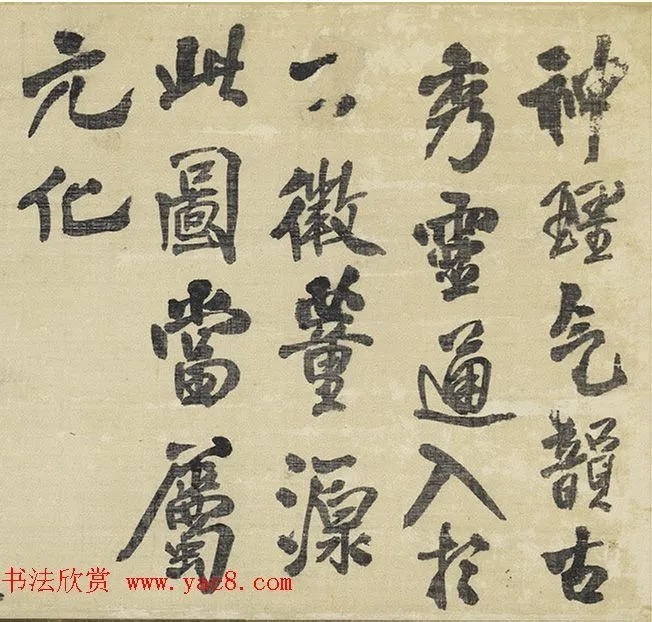 神理气韻古
秀靈通入於
微董源
此圖當屬
元化
书法欣赏 www.yac8.com